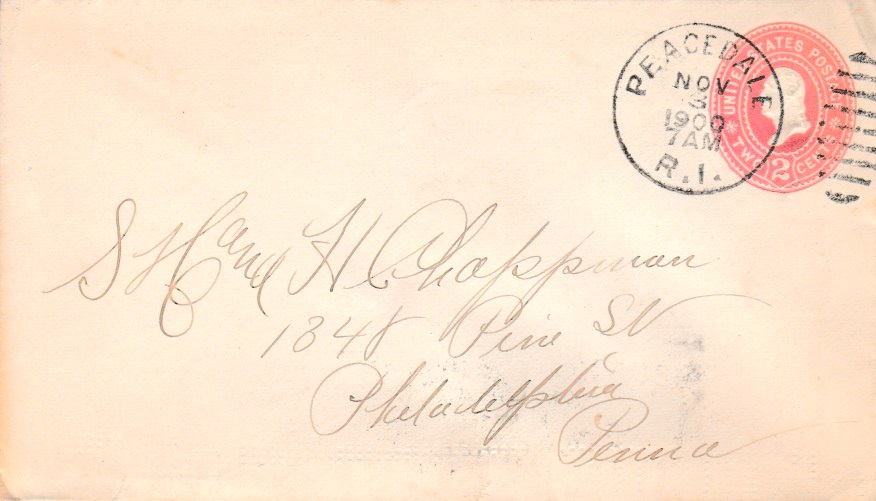 PEACEDALE
NOV
3
1900
7AM
R.I.
UNITED STATES POSTAGE
TWO 2 CENTS
S H Chapman
1348 Pine St
Philadelphia
Penna